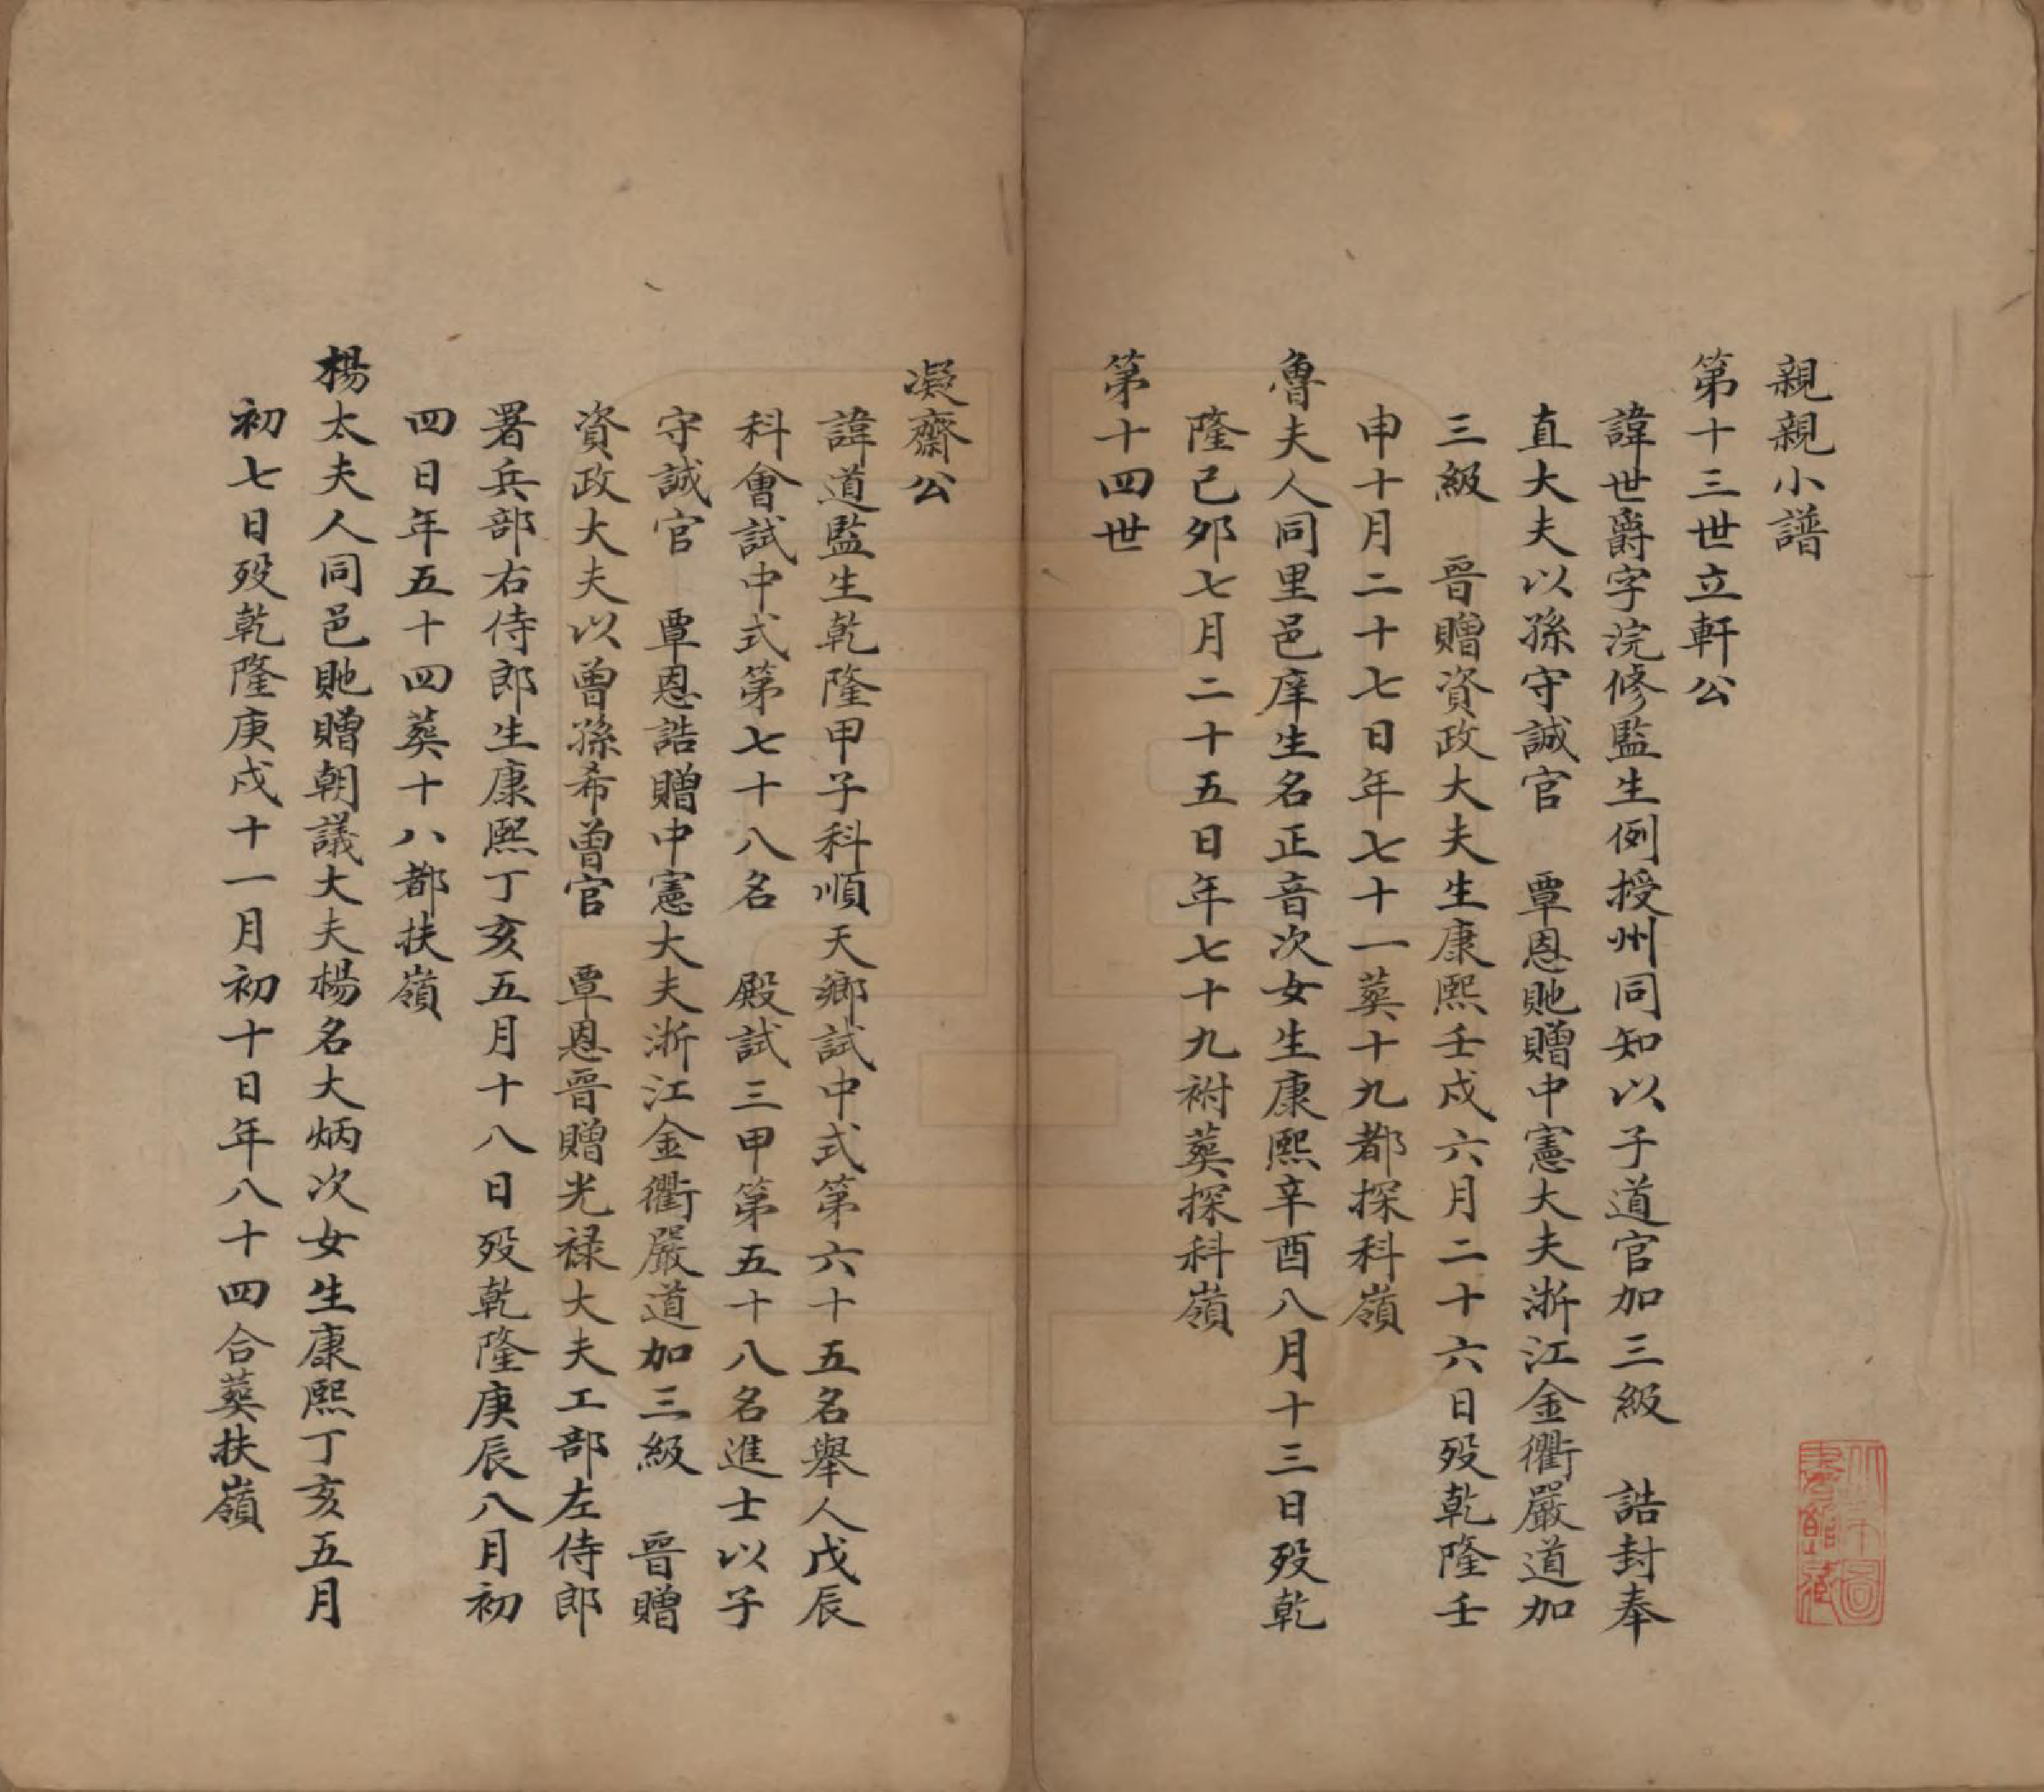 親親小譜
第十三世立軒公
諱世爵字浣修監生例授州同知以子道官加三級 誥封奉
直大夫以孫守誠官 覃恩貤贈中憲大夫浙江金衢嚴道加
三級 晉贈資政大夫生康熙壬戌六月二十六日歿乾隆壬
申十月二十七日年七十一葬十九都探科嶺
魯夫人同里邑庠生名正音次女生康熙辛酉八月十三日歿乾
隆己夘七月二十五日年七十九祔葬探科嶺
第十四世
凝齋公
諱道監生乾隆甲子科順天鄉試中式第六十五名舉人戊辰
科會試中式第七十八名 殿試三甲第五十八名進士以子
守誠官 覃恩誥贈中憲大夫浙江金衢嚴道加三級 晉贈
資政大夫以曾孫希曾官 覃恩晉贈光祿大夫工部左侍郎
署兵部右侍郎生康熙丁亥五月十八日歿乾隆庚辰八月初
四日年五十四葬十八都扶嶺
楊太夫人同邑貤贈朝議大夫楊名大炳次女生康熙丁亥五月
初七日歿乾隆庚戌十一月初十日年八十四合葬扶嶺